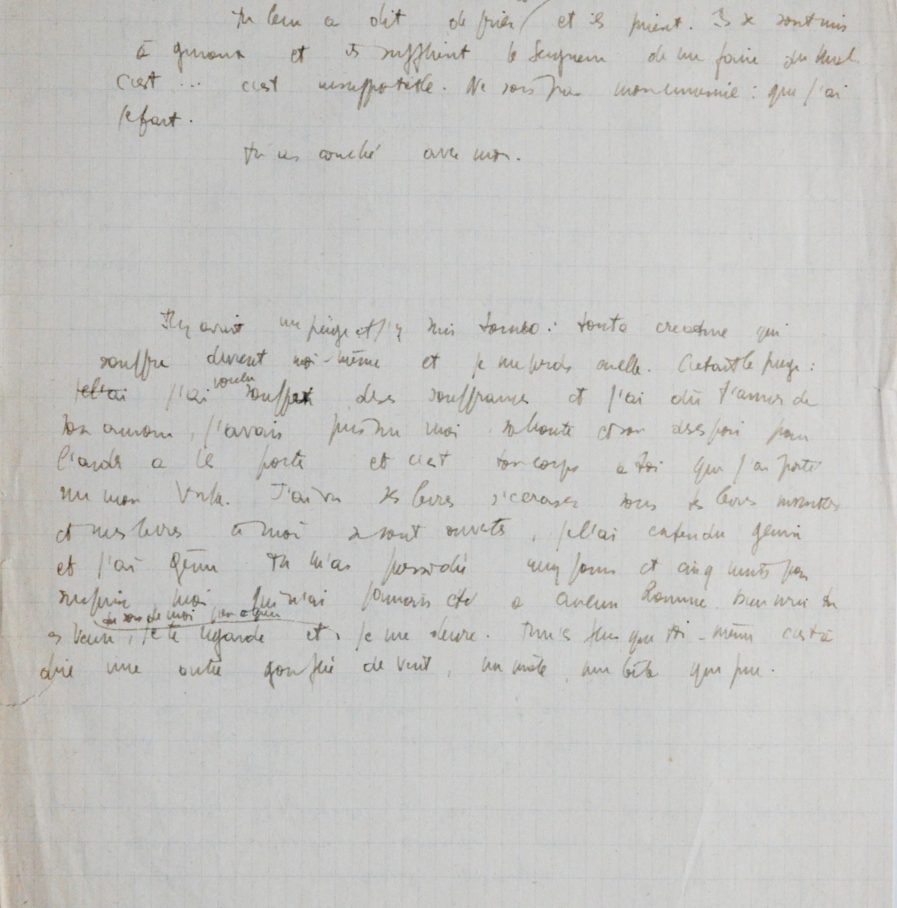 Tu leur a dit de prier et ils prient. Ils se sont mis
à genoux et ils supplient le Seigneur de me faire du mal.
C'est ... c'est insupportable. Ne sois pas mon ennemie : que j'ai
fait.
Tu as couché avec moi.
Il y avait un piège et j'y suis tombé : toute créature qui
souffre devient moi-même et je me perds en elle. C'était le piège :
j'ai voulu souffrir des souffrances et j'ai dû l'amour de
son amour, j'avais pris sur moi sa honte et son désespoir pour
l'aider à les porter et c'est ton corps à toi que j'ai porté
sur mon J'ai vu ses lèvres s'écraser sous tes lèvres
et mes lèvres à moi se sont ouvertes, je l'ai entendu gémir
et j'ai gémi Tu m'as possédé cinq jours et cinq nuits
moi qui n'ai jamais été à aucun homme.
au son de moi
es venu, je te regarde et je me délivre. Tu n'es plus que toi-même c'est à
dire une outre gonflée de vent, un mâle, une bête qui pue.